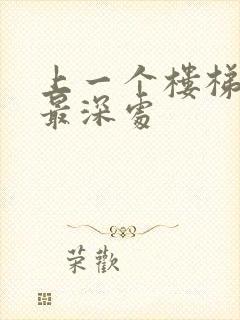 上一个楼梯
最深处
荣欢